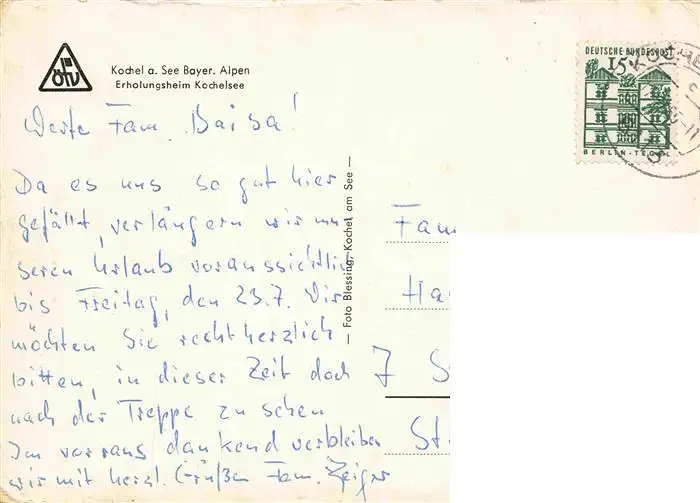 ÖTV
Kochel a. See Bayer. Alpen
Erholungsheim Kochelsee
DEUTSCHE BUNDESPOST
15
BERLIN-TEGEL
KOCHEL
Werte Fam. Baisa!
Da es uns so gut hier
gefällt, verlängern wir un
seren Urlaub voraussichtlich
bis Freitag, den 23.7. Wir
möchten Sie recht herzlich
bitten, in dieser Zeit doch
nach der Treppe zu sehen
Im vorraus dankend verbleiben
wir mit herzl. Grüßen Fam. Zeiger
— Foto Blessing, Kochel am See —
Fam
Ha
7 S
St